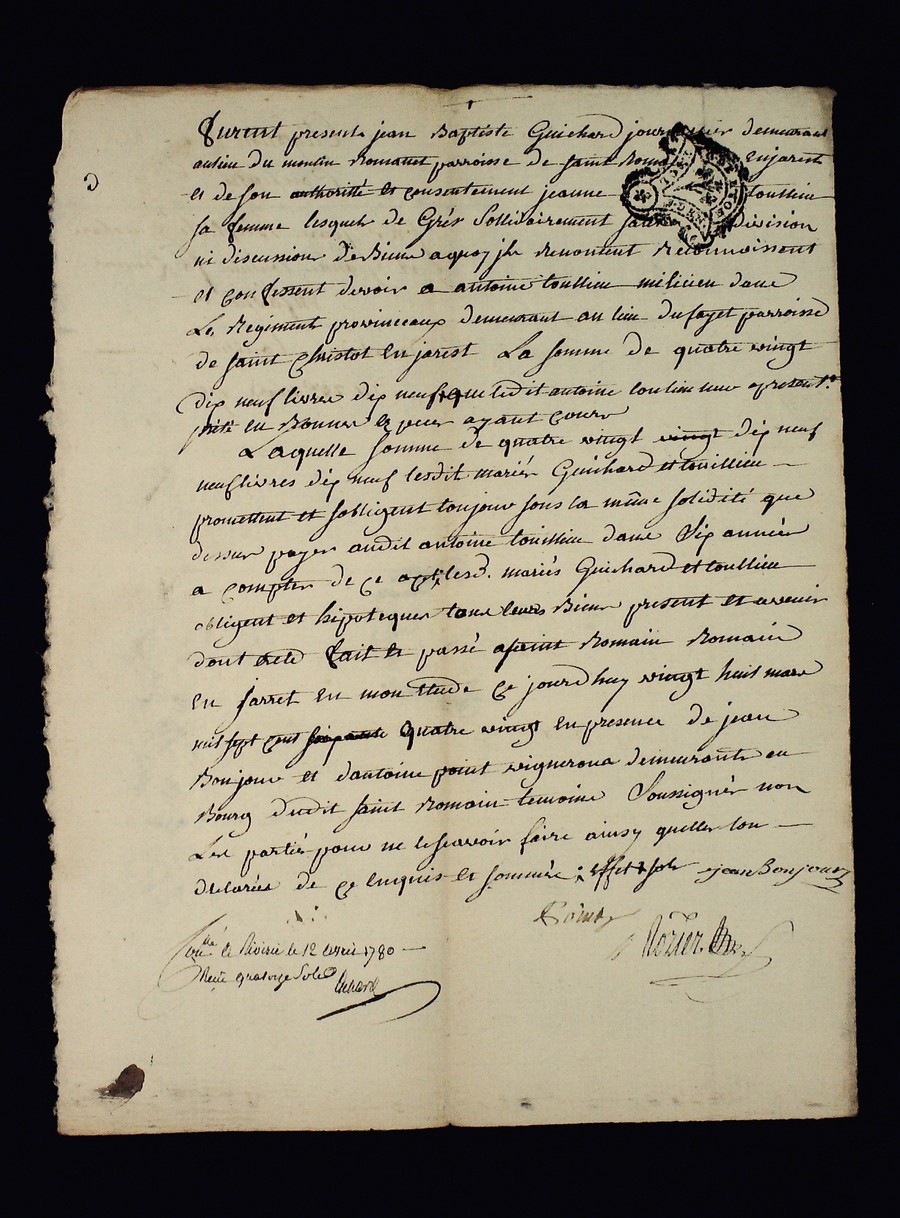 furent presents jean Baptiste Guichard journalier demeurant
au lieu du moulin Romanet parroisse de saint Romain Enjarest
et de son authorité et consentement jeanne toullieu
sa femme lesquels de Grés sollidairement sans division
ni discussion de Biens a quoy jls Renontent Reconnoissent
et confessent devoir a antoine toullieu milicien dans
Le Regiment provinceaux demeurant au lieu du fayet parroisse
de saint christot En jarest La somme de quatre vingt
dix neuf livres dix neuf que ledit antoine toullieu a presenté
preté en Bonnes Especes ayant cours
Laquelle somme de quatre vingt vingt dix neuf
neuf livres dix neuf lesdit mariés Guichard et toullieu
promettent et sobligent toujour sous la même solidité que
dessus payer audit antoine toullieu dans Six années
a compter de ce lesd. mariés Guichard et toullieu
obligent et hipotequer tous leurs Biens present et avenir
dont acte fait et passé a saint Romain Romain
en jarret en mon Etude ce jourdhuy vingt huit mars
mil sept cent soixante quatre vingt en presence de jean
Bonjour et dantoine point vignerons demeurants au
Bourg dudit saint Romain temoins Soussignés non
Les parties pour ne le scavoir faire ainsy quelles lon
declarées de ce Enquis et sommés jean Bonjour
Point
Contlé de Rivirie le 12 avril 1780
Reçu quatorze Sols